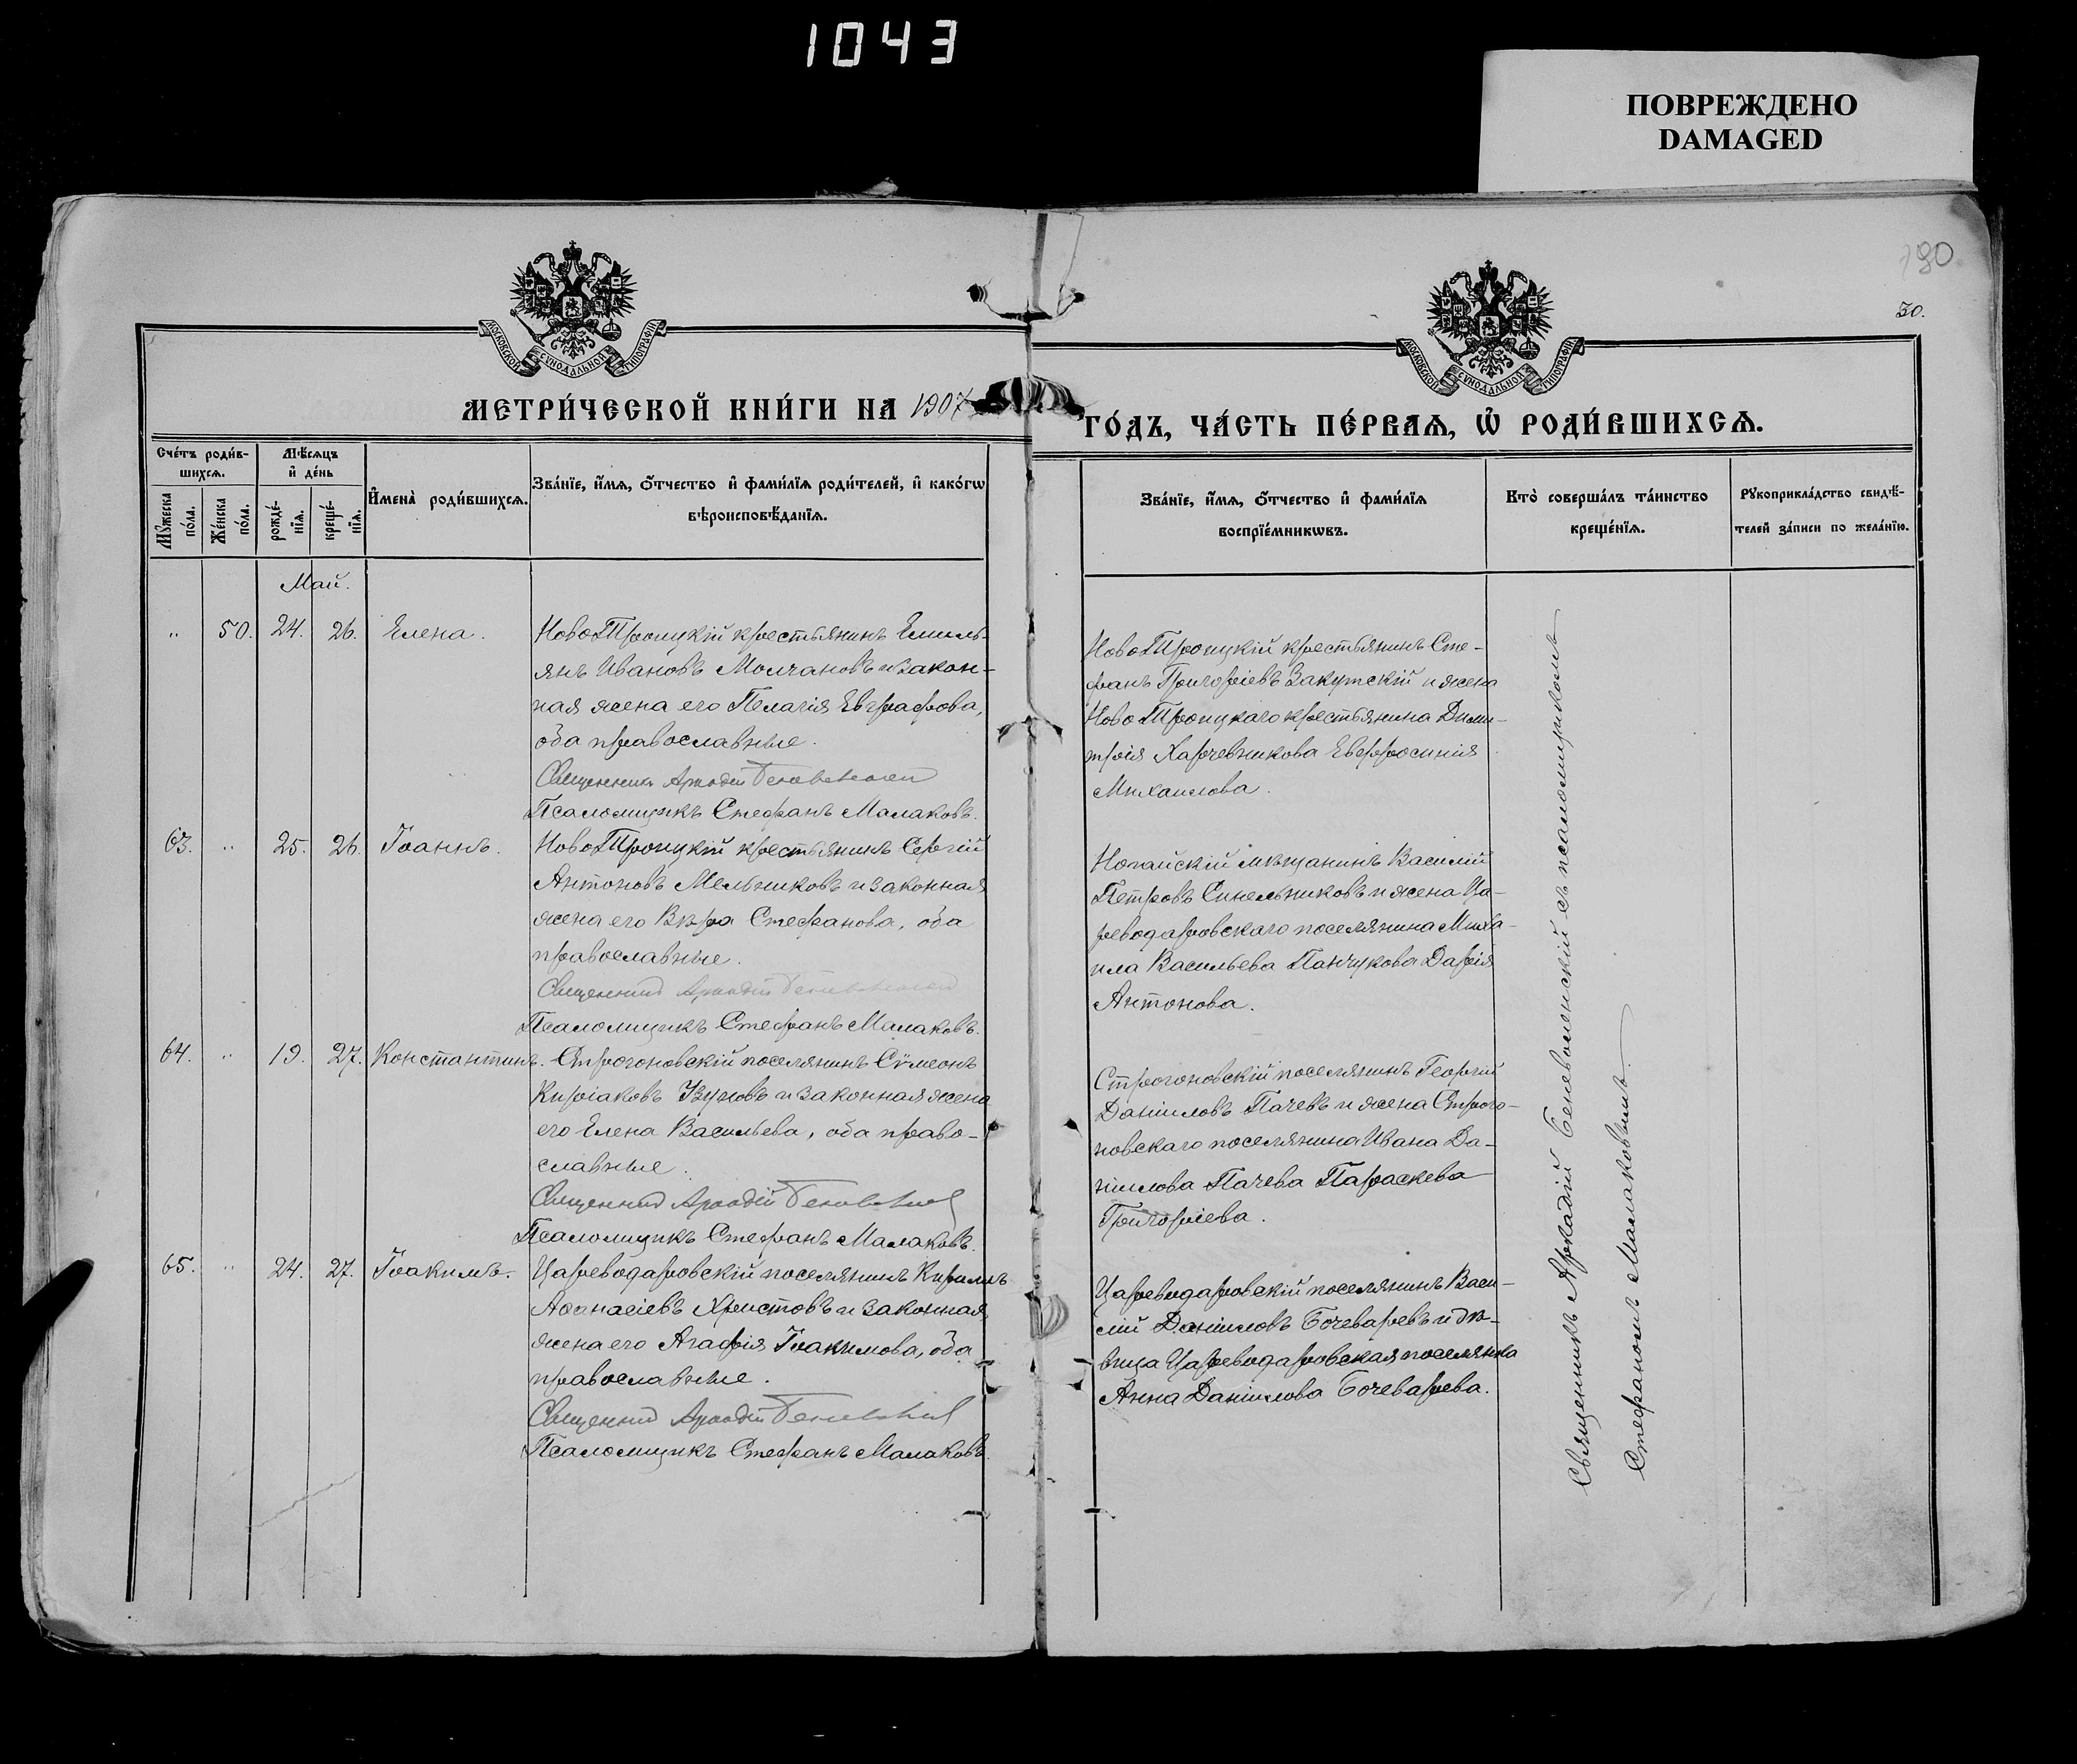 1043
ПОВРЕЖДЕНО
DAMAGED
190.
30.
МОСКОВСКОЙ СѴНОДАЛЬНОЙ ТИПОГРАФІИ
МОСКОВСКОЙ СѴНОДАЛЬНОЙ ТИПОГРАФІИ
МЕТРИ́ЧЕСКОЙ КНИ́ГИ НА 1907
ГО́ДЪ, ЧА́СТЬ ПЕ́РВАѦ, Ѡ҆ РОДИ́ВШИХСѦ.
Сче́тъ роди́в-
шихсѧ.
Мꙋ́жеска
по́ла.
Же́нска
по́ла.
Мѣ́сѧцъ
и҆ де́нь
рожде́-
нїѧ.
креще́-
нїѧ.
И҆мена̀ роди́вшихсѧ.
Зва́нїе, и҆́мѧ, ѻ҆́тчество и҆ фами́лїѧ роди́телей, и҆ како́гѡ
вѣроисповѣ́данїѧ.
Зва́нїе, и҆́мѧ, ѻ҆́тчество и҆ фами́лїѧ
воспрїе́мникѡвъ.
Кто̀ соверша́лъ та́инство
креще́нїѧ.
Рꙋкоприкла́дство свидѣ́-
телей за́писи по жела́нїю.
Май.
" 50. 24. 26. Елена.
НовоТроицкій крестьянинъ Емиль-
янъ Ивановъ Молчановъ и закон-
ная жена его Пелагія Евграфова,
оба православные.
Священникъ Аркадій Беневоленскій
Псаломщикъ Стефанъ Малаковъ.
НовоТроицкій крестьянинъ Сте-
фанъ Григоріевъ Закутскій и жена
НовоТроицкаго крестьянина Дими-
трія Харчевникова Евфросинія
Михаилова.
63. " 25. 26. Іоаннъ.
НовоТроицкій крестьянинъ Сергій
Антоновъ Мельниковъ и законная
жена его Вѣра Стефанова, оба
православные.
Священникъ Аркадій Беневоленскій
Псаломщикъ Стефанъ Малаковъ.
Ногайскій мѣщанинъ Василій
Петровъ Синельниковъ и жена Ца-
реводаровскаго поселянина Миха-
ила Васильева Панчукова Дарія
Антонова.
64. " 19. 27. Константинъ.
Строгоновскій поселянинъ Сѵмеонъ
Киріаковъ Узуновъ и законная жена
его Елена Васильева, оба право-
славные.
Священникъ Аркадій Беневоленскій
Псаломщикъ Стефанъ Малаковъ.
Строгоновскій поселянинъ Георгій
Даніиловъ Пачевъ и жена Строго-
новскаго поселянина Ивана Да-
ніилова Пачева Параскева
Григоріева.
65. " 24. 27. Іоакимъ.
Цареводаровскій поселянинъ Кириллъ
Аѳанасіевъ Христовъ и законная
жена его Агафія Іоакимова, оба
православные.
Священникъ Аркадій Беневоленскій
Псаломщикъ Стефанъ Малаковъ.
Цареводаровскій поселянинъ Васи-
лій Даніиловъ Бочеваровъ и дѣ-
вица Цареводаровская поселянка
Анна Даніилова Бочеварова.
Священникъ Аркадій Беневоленскій съ псаломщикомъ
Стефаномъ Малаковымъ.